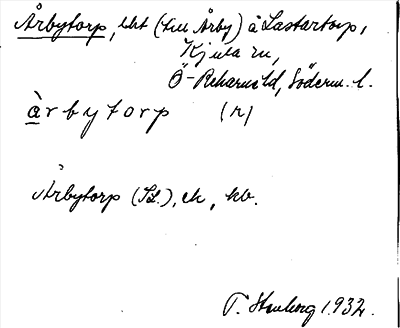 Årbytorp, lht (till Årby) å Lastartorp,
Kjula sn,
Ö-Rekarne hd, Söderm. l.
å̀rbytorp (r)
Årbytorp (Bl.), ek, kb.
T. Stenberg 1932.